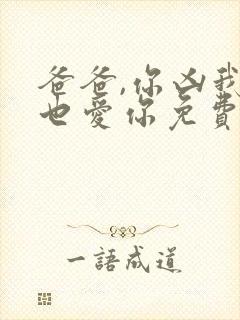 爸爸,你凶我
也愛你免費
一語成道